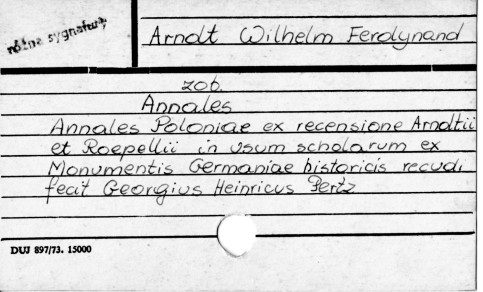 różne sygnatury
Arndt Wilhelm Ferdynand
zob.
Annales
Annales Poloniae ex recensione Arndtii
et Roepellii in usum scholarum ex
Monumentis Germaniae historicis recudi
fecit Georgius Heinricus Pertz
DUJ 897/73. 15000